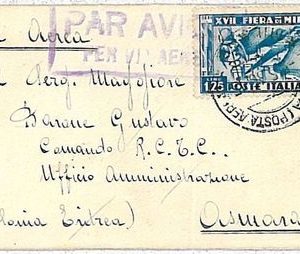 PAR AVI
PER VIA AEREA
XVII FIERA DI MIL
1,25 POSTE ITALI
(POSTA AER
a Aerea
Aerg. Maggiore
Barone Gustavo
Comando R.C.T.C.
Ufficio Amministrazione
lonia Eritrea)
Asmara